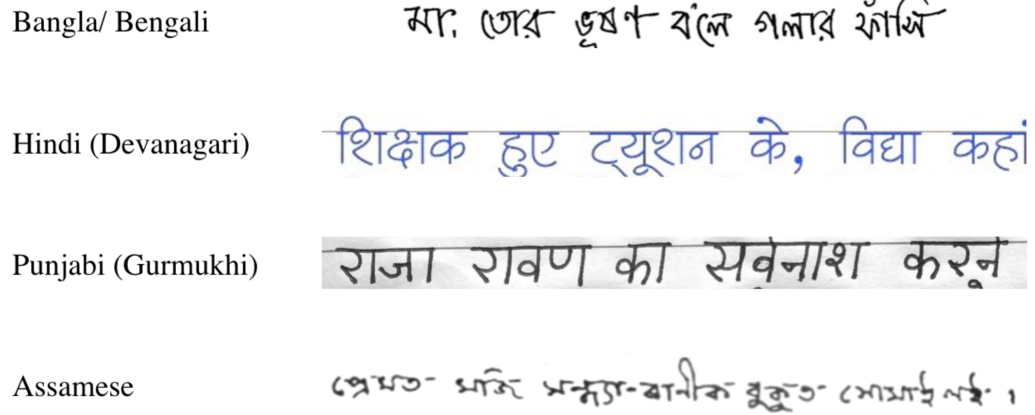 Bangla/ Bengali মা. তোর ভূষণ ব'লে গলার ফাঁসি
Hindi (Devanagari) शिक्षाक हुए ट्यूशन के, विद्या कहां
Punjabi (Gurmukhi) राजा रावण का सर्वनाश करने
Assamese প্ৰেমত মজি